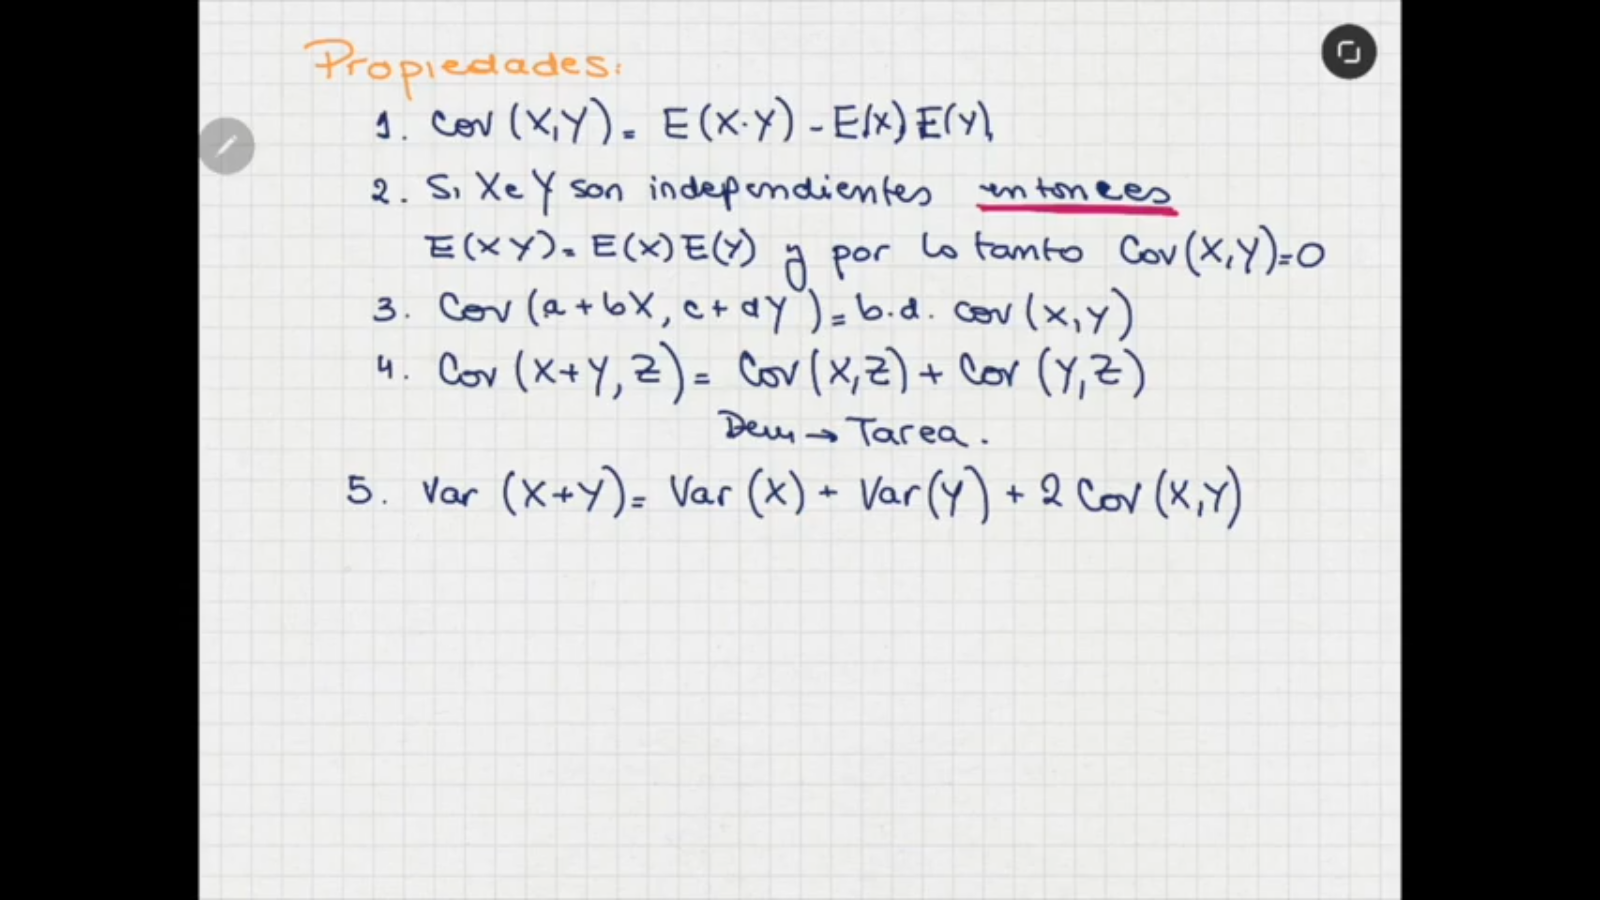 Propiedades:
1. Cov (X,Y) = E(X·Y) - E(X) E(Y)
2. Si X e Y son independientes entonces
E(XY) = E(X) E(Y) y por lo tanto Cov(X,Y)=0
3. Cov (a + bX, c + dY) = b.d. cov (X,Y)
4. Cov (X+Y, Z) = Cov (X,Z) + Cov (Y,Z)
Dem → Tarea.
5. Var (X+Y) = Var (X) + Var (Y) + 2 Cov (X,Y)